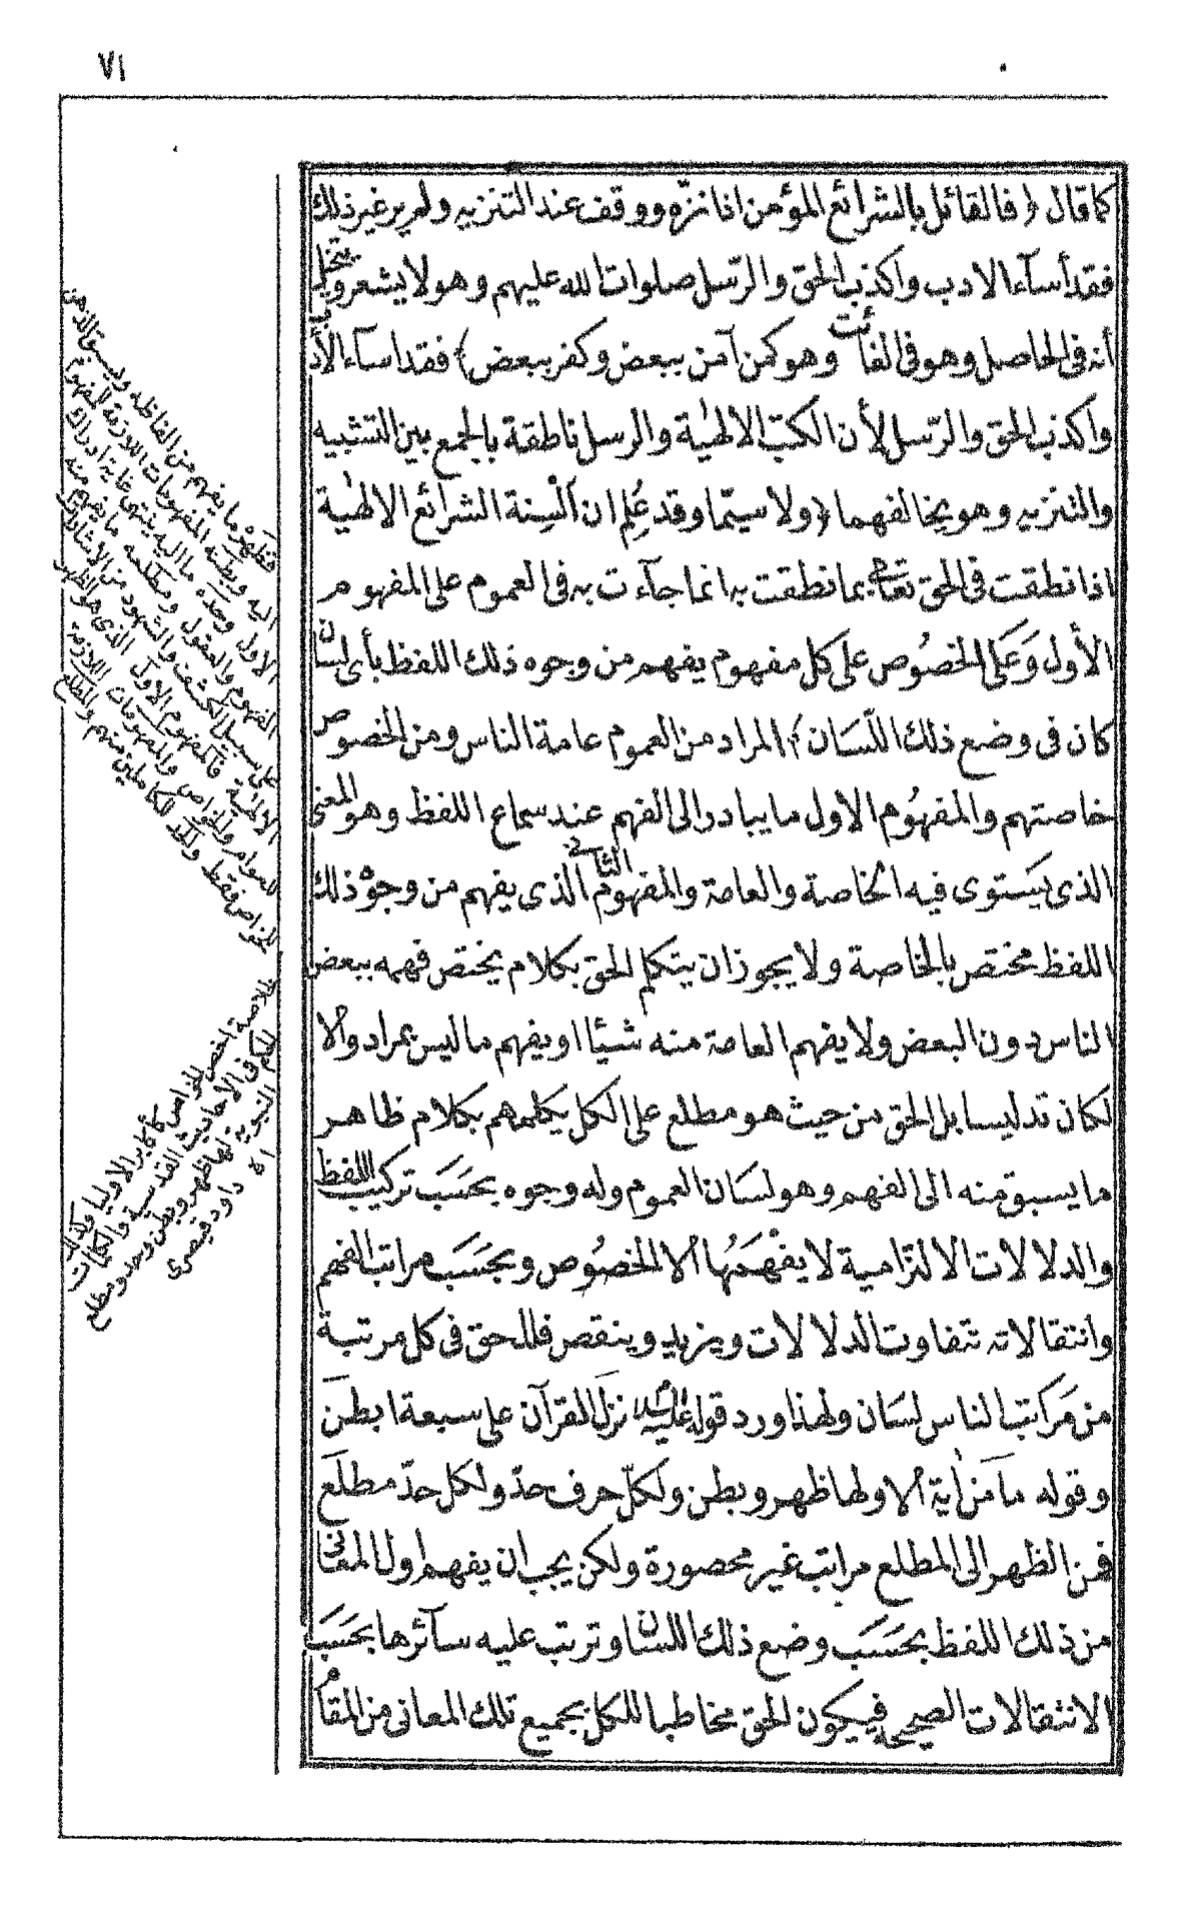 ٧١
كما قال ﴿ فالقائل بالشرائع المؤمن اذا نزّه ووقف عند التنزيه ولم ير غير ذلك
فقد أسآء الادب واكذب الحق والرّسل صلوات الله عليهم وهو لا يشعر ويتخيل
أنه في الحاصل وهو في الفائت وهو كمن آمن ببعض وكفر ببعض ﴾ فقد اسآء الأدب
واكذب الحق والرّسل لأن الكتب الالهٰية والرسل ناطقة بالجمع بين التشبيه
والتنزيه وهو يخالفهما ﴿ ولا سيّما وقد عُلِم ان اَلْسِنة الشرائع الالهٰية
اذا نطقت في الحق تعالى بما نطقت به انما جآءت به في العموم على المفهوم
الأول وَعَلى الخصُوص على كل مفهوم يفهم من وجوه ذلك اللفظ بأى لسان
كان في وضع ذلك اللّسَان ﴾ المراد من العموم عامة الناس ومن الخصوص
خاصتهم والمفهُوم الاول ما يبادر الى الفهم عند سماع اللفظ وهو المعنى
الذى يَستوى فيه الخاصة والعامة والمفهوم الثانى الذى يفهم من وجوه ذلك
اللفظ مختص بالخاصة ولا يجوز ان يتكلم الحق بكلام يختص فهمه ببعض
الناس دون البعض ولا يفهم العامة منه شيئا او يفهم ما ليس بمراد والا
لكان تدليسا بل الحق من حيث هو مطلع على الكل يكلمهم بكلام ظاهر
ما يسبق منه الى الفهم وهو لسَان العموم وله وجوه بحسَب تركيب اللفظ
والدلالات الالتزامية لا يفْهَمُها الا الخصُوص وبحَسَب مراتب الفهم
وانتقالاته تتفاوت الدلالات ويزيد وينقص فللحق في كل مرتبة
من مَراتب الناس لسَان ولهذا ورد قوله عليه السلام نزل القرآن على سبعة ابطن
وقوله مَا مَن اٰية الا ولها ظهر وبطن ولكلّ حرف حدّ ولكل حدّ مطلَع
فمن الظهر الى المطلع مراتب غير محصورة ولكن يجب ان يفهم اول المعانى
من ذلك اللفظ بحَسَب وضع ذلك اللسان وترتب عليه سآئرها بحَسَب
الانتقالات الصحيحة فيكون الحق مخاطبا للكل بجميع تلك المعانى من المقام
فظهره ما يفهم من الفاظه ويسبق الذهن
اليه وبطنه المفهومات اللازمة للمفهوم
الاول وحده ما اليه ينتهى غاية ادراك
الفهوم والعقول ومطلعه ما يفهم منه
على سبيل الكشف والشهود من الاشارات
الالهية فالمفهوم الاول الذى هو الظهر
للعوام والخواص والمفهومات اللازمة
للخواص فقط والحد للكاملين منهم والمطلع
لخلاصة اخص الخواص كأكابر الاوليا وكذلك
الحكم في الاحاديث القدسية والكلمات
النبوية لها ظهر وبطن وحد ومطلع
اه داود قيصرى